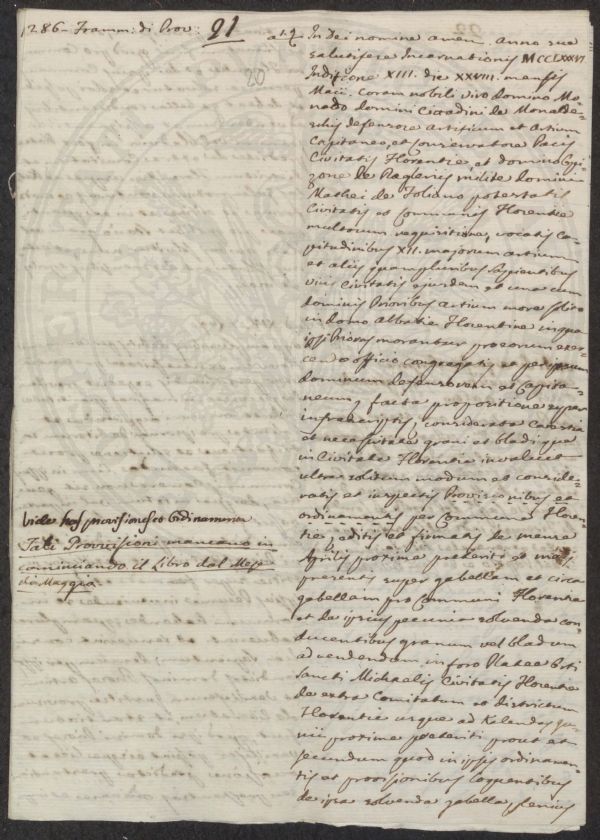 1286 - Framm: di Prov: 91
20
a 1.q In Dei nomine amen. Anno sue
salutifere Incarnationis MCCLXXXVI.
Indictione XIII. die XXVIII. mensis
Maii. Coram nobili viro domino Mo-
naldo domini Cittadini de Monalde-
schis defensore artificum et artium
Capitaneo, et Conservatore Pacis
Civitatis Florentie, et domino
zone De milite domini
Mathei de Foliano potestatis
Civitatis et Communis Florentie
multorum requisitione, vocatis Ca-
pitudinibus XII. majorum artium
et aliis quampluribus sapientibus
viris Civitatis ejusdem et una cum
dominis Prioribus Artium more solito
in domo Abbatie Florentine in qua
ipsi Priores morantur pro eorum exer-
cendo officio congregatis et per ipsum
dominum defensorem et Capita-
neum facta propositione super
infrascriptis, considerata Carestia
et necessitate grani et bladi, que
in Civitate Florentie invaluit
ultra solitum modum et conside-
ratis et inspectis Provisionibus et
ordinamentis per Commune Floren-
tie, editis et firmatis de mense
Aprilis proxime preteriti et mens.
presentis super gabellam et circa
gabellam pro Communi Florentie
et de ipsius pecunia solvenda con-
ducentibus granum vel bladum
ad vendendum in foro Platee Bti
Sancti Michaelis Civitatis Florentie
de extra Comitatum et districtum
Florentie usque ad Kalendas Ju-
nii proxime preteriti prout et
secundum quod in ipsis ordinamen-
tis et provisionibus loquentibus
de ipsa solvenda gabella, plenius
vide has provisiones et ordinamenta
Tali Provvisioni mancano in-
cominciando il Libro dal Mese
di Maggio